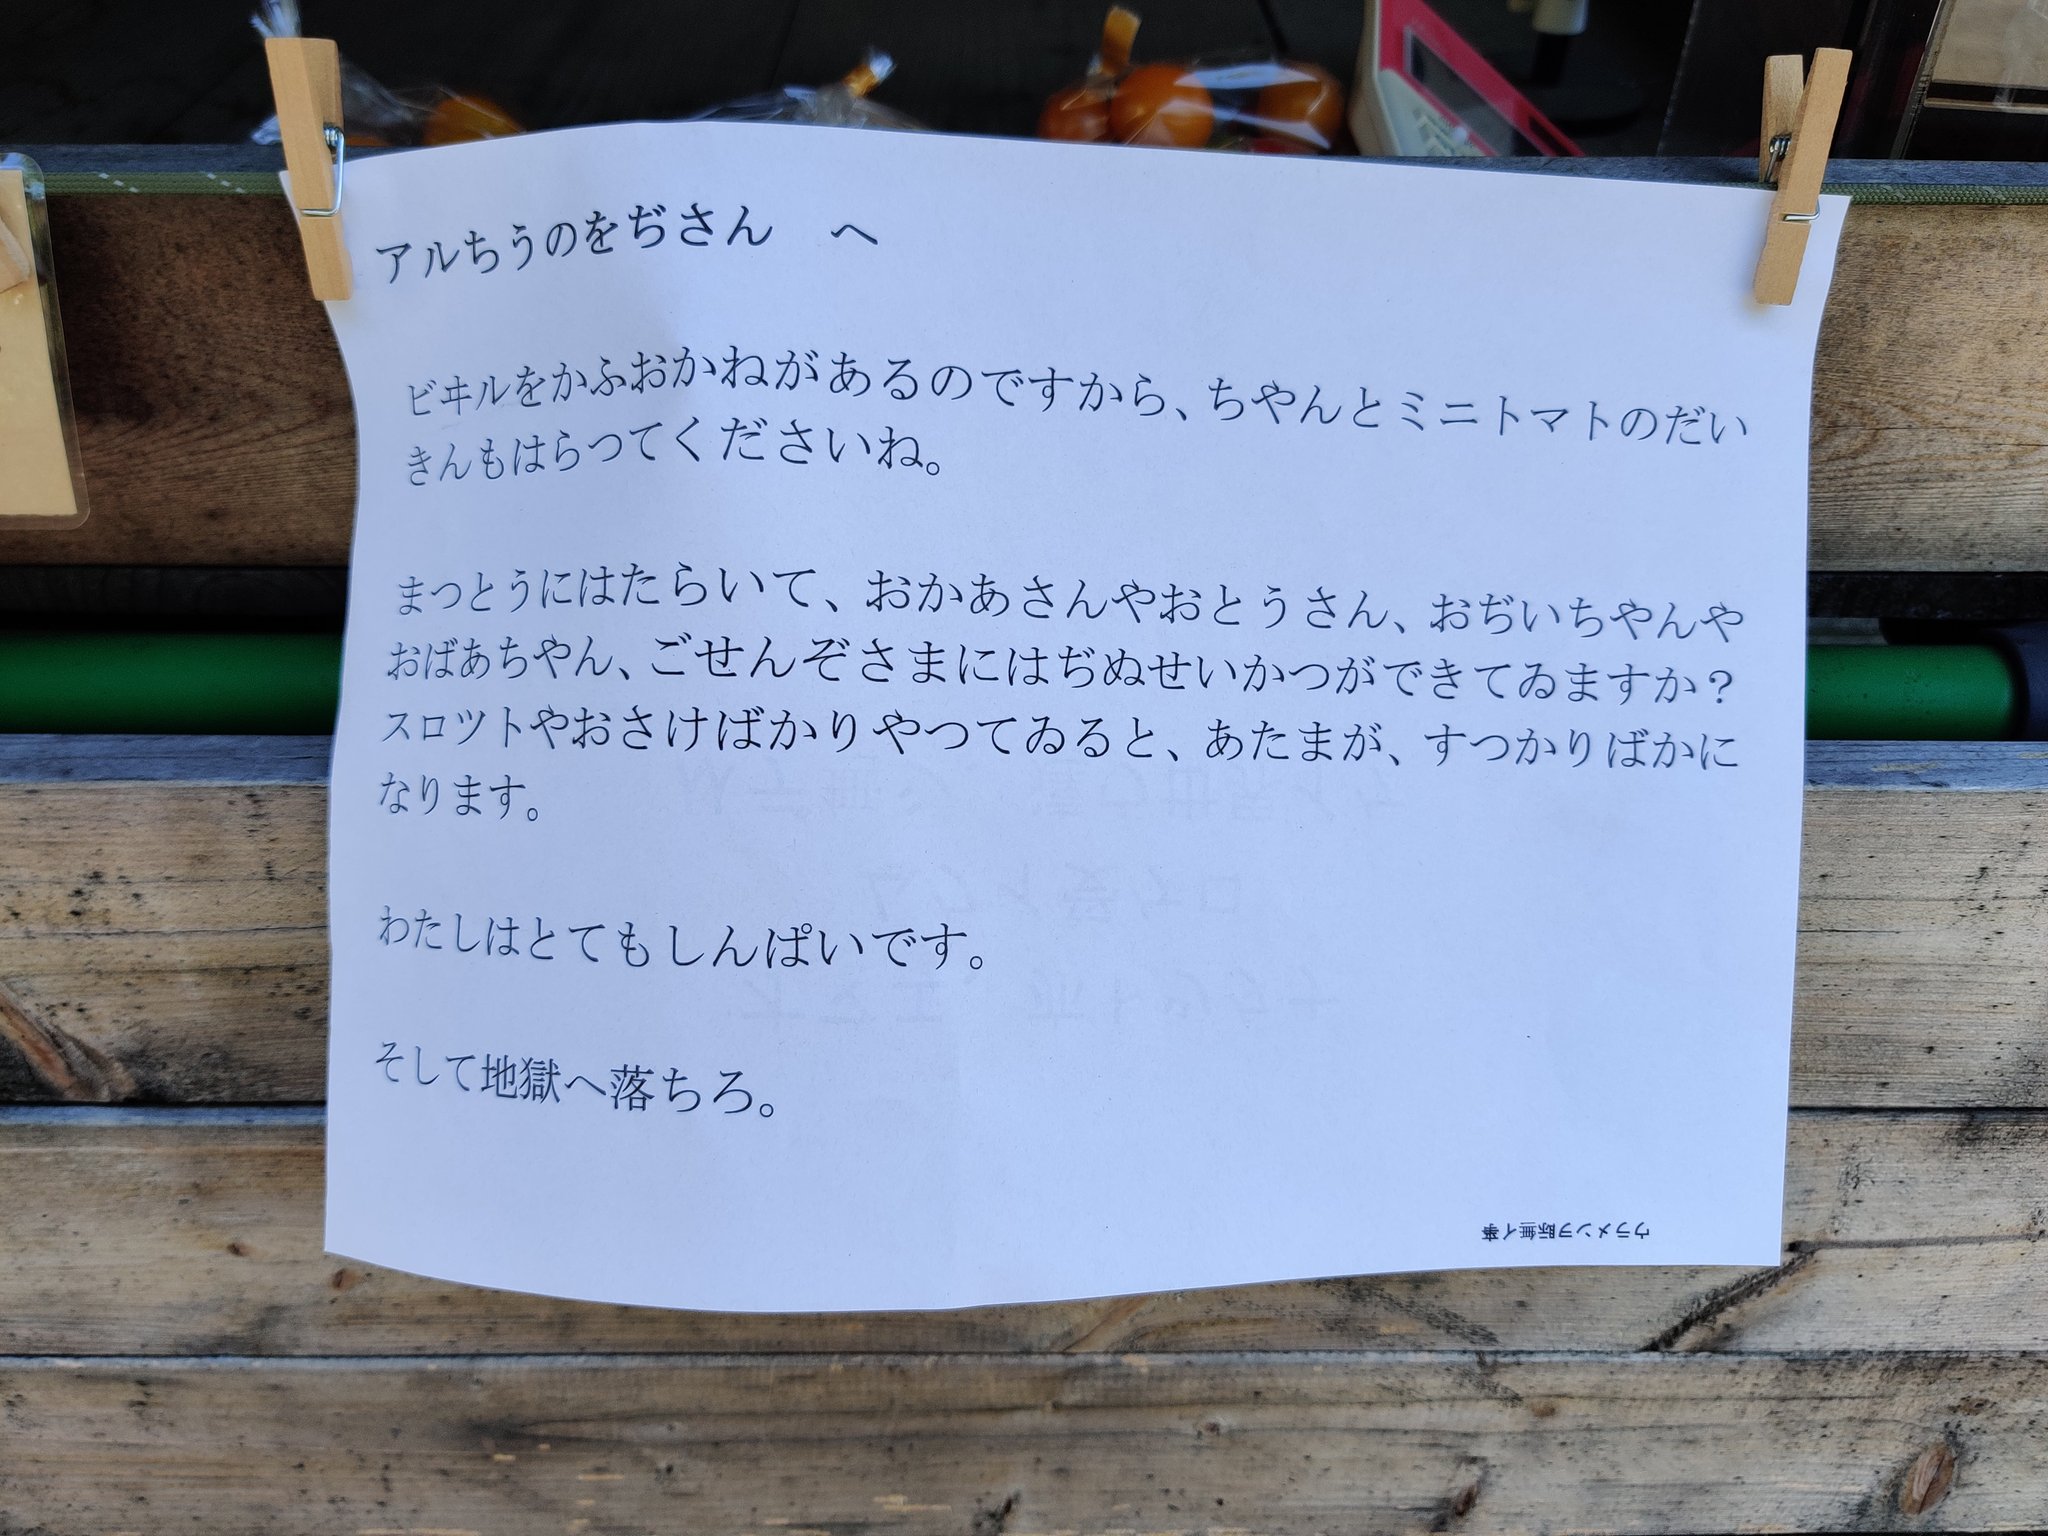 アルちうのをぢさん　へ
ビヰルをかふおかねがあるのですから、ちやんとミニトマトのだい
きんもはらつてくださいね。
まつとうにはたらいて、おかあさんやおとうさん、おぢいちやんや
おばあちやん、ごせんぞさまにはぢぬせいかつができてゐますか？
スロツトやおさけばかりやつてゐると、あたまが、すつかりばかに
なります。
わたしはとてもしんぱいです。
そして地獄へ落ちろ。